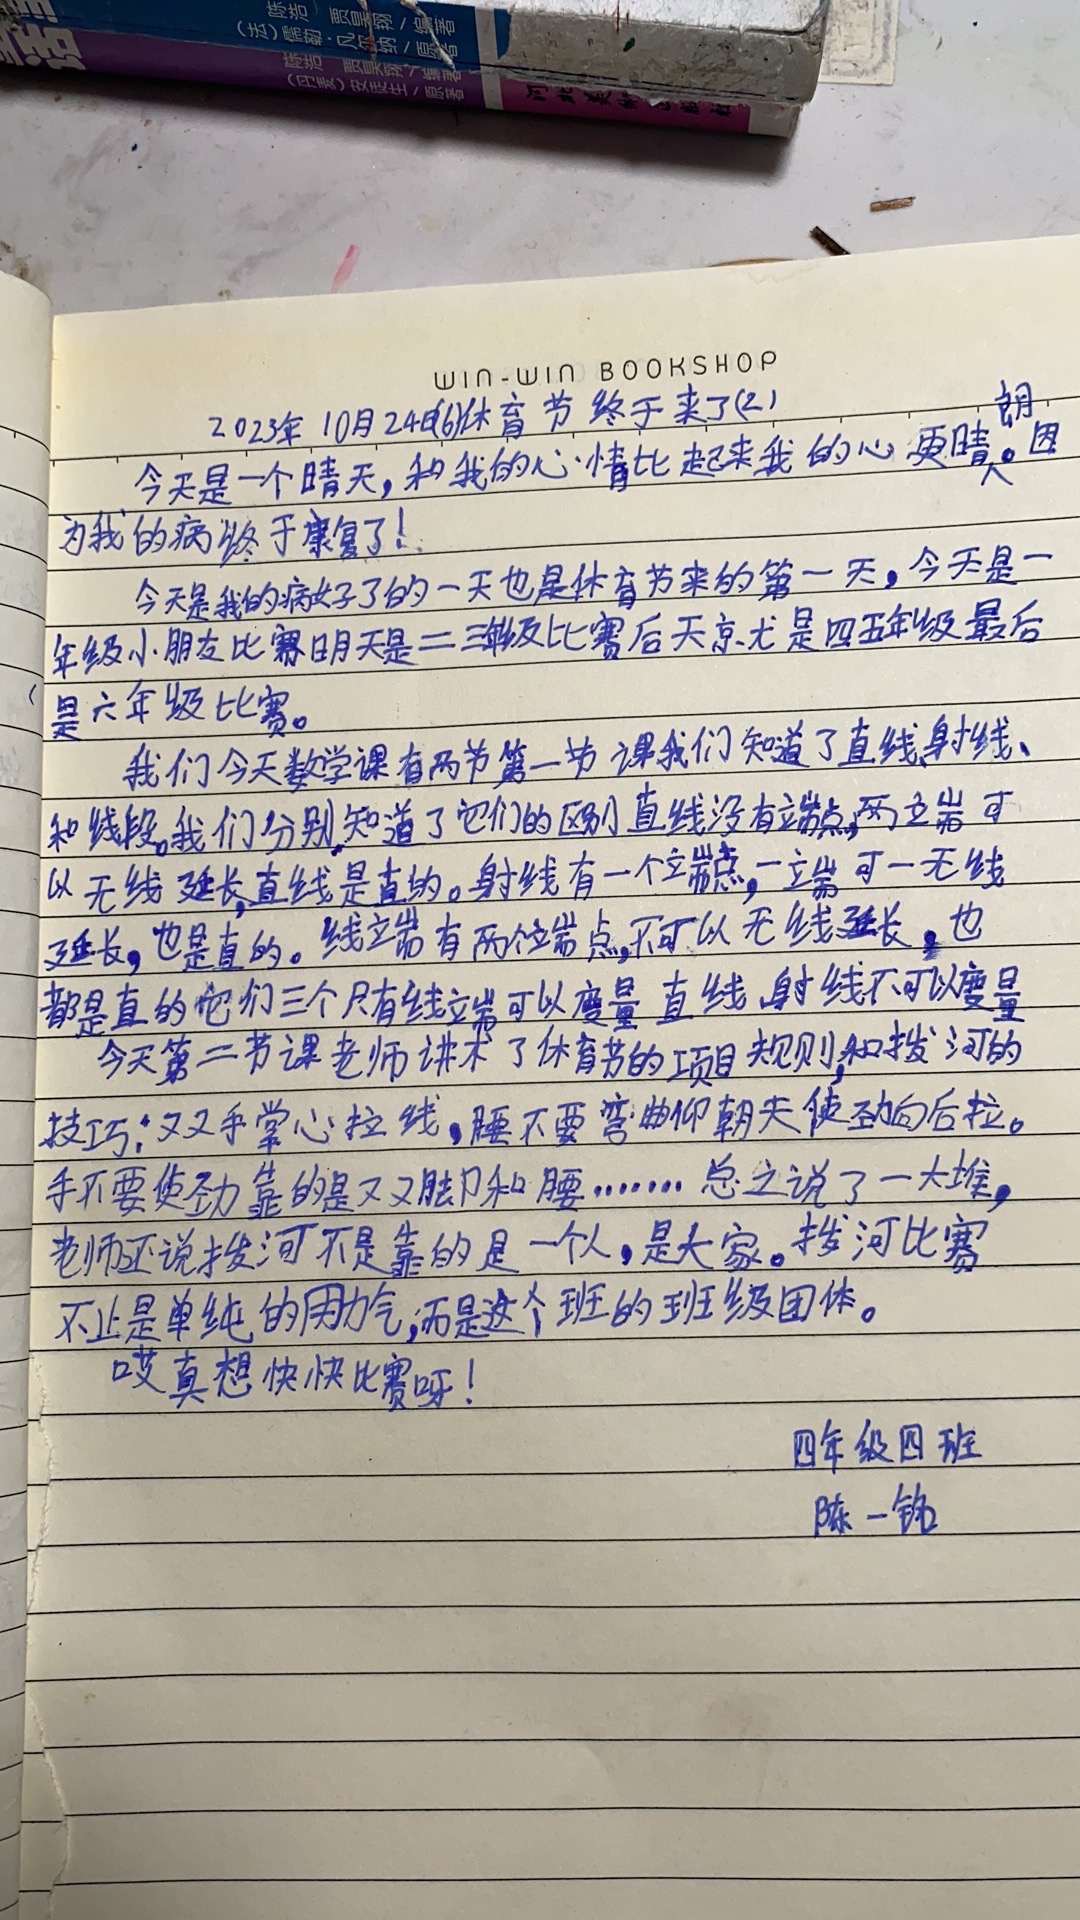 陈浩 贾昊翔／编著
（法）儒勒·凡尔纳／原著
陈浩 贾昊翔／编著
（丹麦）安徒生／原著
WIN-WIN BOOKSHOP
2023年10月24日(6)休育节终于来了(2)
今天是一个晴天，和我的心情比起来我的心更晴朗。因
为我的病终于康复了！
今天是我的病好了的一天也是休育节来的第一天，今天是一
年级小朋友比赛明天是二三年级比赛后天京尤是四五年级最后
是六年级比赛。
我们今天数学课有两节第一节课我们知道了直线、射线、
和线段。我们分别知道了它们的区别直线没有端点，两端可
以无线延长，直线是直的。射线有一个端点，一端可一无线
延长，也是直的。线端有两个端点，不可以无线延长，也
都是直的它们三个只有线端可以度量直线、射线不可以度量
今天第二节课老师讲术了休育节的项目规则，和拨河的
技巧：双手掌心拉线，腰不要弯曲仰朝天使劲向后拉。
手不要使劲靠的是双脚和腰……总之说了一大堆，
老师还说拨河不是靠的是一个人，是大家。拨河比赛
不止是单纯的用力气，而是这个班的班级团体。
哎真想快快比赛呀！
四年级四班
陈一铭